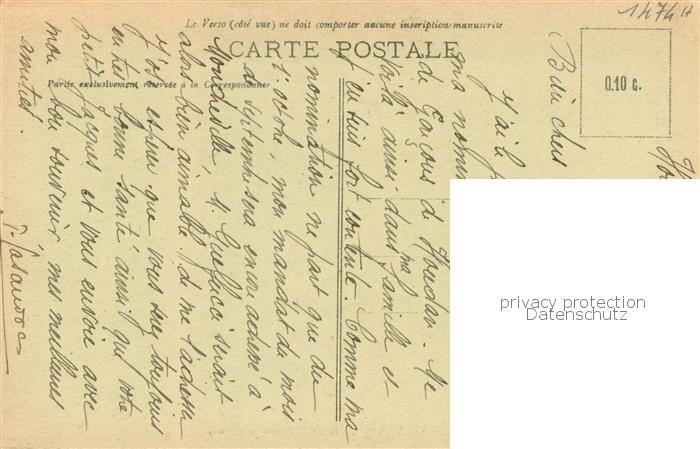 Le Verso (côté vue) ne doit comporter aucune inscription manuscrite
CARTE POSTALE
Partie exclusivement réservée à la Correspondance
1474 H
0.10 c.
privacy protection
Datenschutz
J'ai l
ma nomi
de Garçons d Houdan. Me
voilà ainsi dans ma famille et
j'en suis fort contente. Comme ma
nomination ne part que du
1er octobre, mon mandat du mois
de septembre sera encore adressé à
alors bien aimable de me l'adresser
J'espère que vous êtes toujours
en très bonne santé ainsi que votre
petit Jacques et vous envoie avec
mon bon souvenir mes meilleures
amitiés.